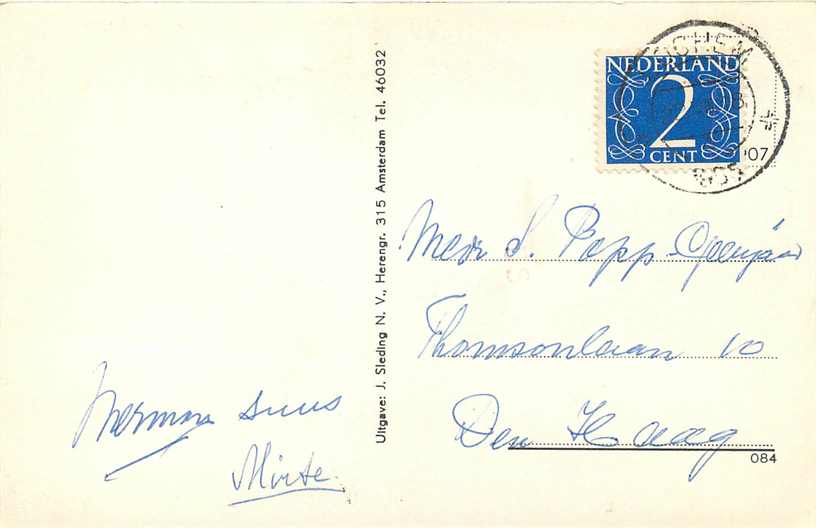 NEDERLAND
2
CENT
107
Uitgave: J. Sleding N. V., Herengr. 315 Amsterdam Tel. 46032
Mevr S. Popp
Thomsonlaan 10
Den Haag
084
Herman suus
Mirte